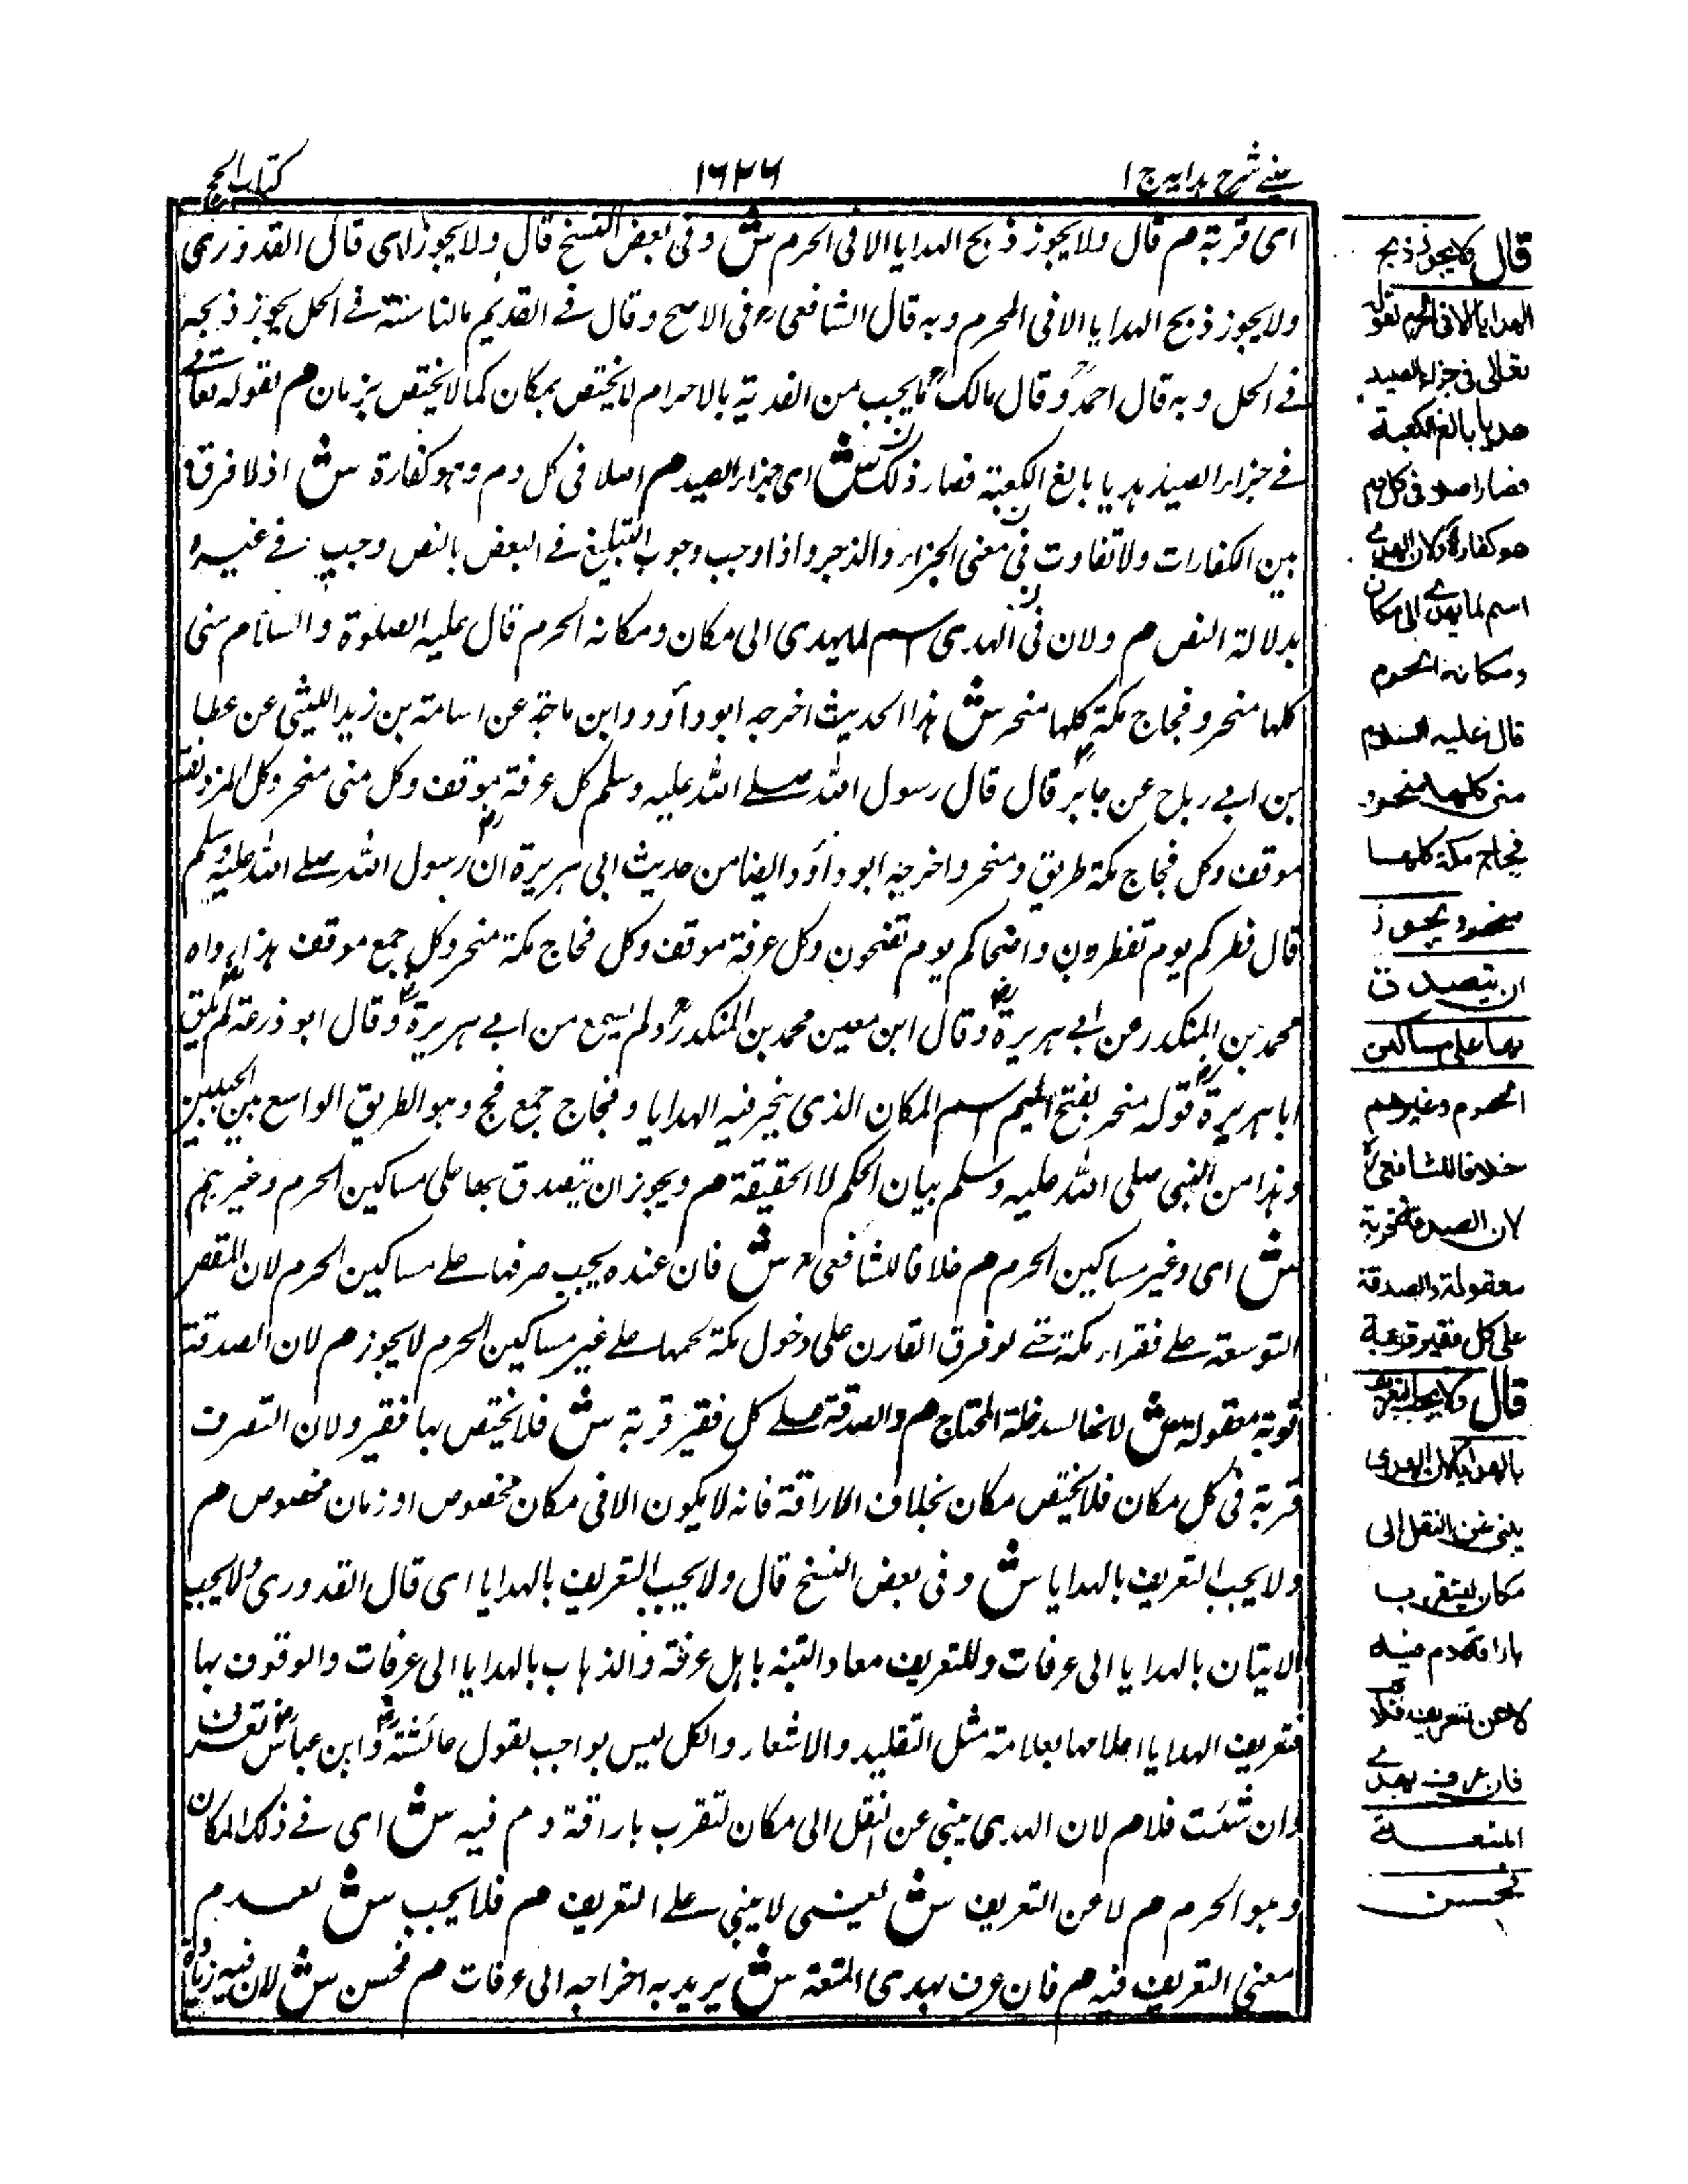 عینے شرح ہدایہ ج ۱
۱۶۲۶
کتاب الحج
ای قربة م قال ولا یجوز ذبح الهدایا الا فی الحرم ش وفی بعض النسخ قال ولا یجوز ای قال القدوری
ولا یجوز ذبح الهدایا الا فی الحرم وبه قال الشافعی رح فی الاصح وقال فے القدیم فے الحل یجوز ذبحه
فے الحل وبه قال احمد رح وقال مالک رح ما یجب من الفدیة بالاحرام لا یختص بمکان کما لا یختص بزمان م لقوله تعالے
فے جزاء الصید هدیا بالغ الکعبة فصار ذلک ش ای جزاء الصید م اصلا فی کل دم وهو کفارة ش اذ لا فرق
بین الکفارات ولا تفاوت فی معنی الجزاء والزجر واذا وجب وجوب التبلیغ فے البعض بالنص وجب فے غیره
بدلالة النص م ولان الهدی اسم لما یهدی الی مکان ومکانه الحرم قال علیه الصلوة والسلام منی
کلها منحر وفجاج مکة کلها منحر ش هذا الحدیث اخرجه ابو داؤد وابن ماجة عن اسامة بن زید اللیثی عن عطا
بن ابے رباح عن جابر قال قال رسول الله صلے الله علیه وسلم کل عرفة موقف وکل منی منحر وکل المزدلفة
موقف وکل فجاج مکة طریق ومنحر واخرجه ابو داؤد ایضا من حدیث ابی هریرة ان رسول الله صلے الله علیه وسلم
قال فطرکم یوم تفطرون واضحاکم یوم تضحون وکل عرفة موقف وکل فجاج مکة منحر وکل جمع موقف هذا رواه
محمد بن المنکدر عن ابے هریرة رض وقال ابن معین محمد بن المنکدر رح ولم یسمع من ابے هریرة رض وقال ابو ذرعة لم یلق
ابا هریرة رض قوله منحر بفتح المیم اسم المکان الذی ینحر فیه الهدایا وفجاج جمع فج وهو الطریق الواسع بین الجبلین
وهذا من النبی صلی الله علیه وسلم بیان الحکم لا الحقیقة م ویجوز ان یتصدق بها علی مساکین الحرم وغیرهم
ش ای وغیر مساکین الحرم م خلافا للشافعی رح ش فان عنده یجب صرفها علے مساکین الحرم لان المقصر
التوسعة علے فقراء مکة حتے لو فرق القارن علی دخول مکة لحمها علے غیر مساکین الحرم لا یجوز م لان الصدقة
قربة معقولة ش لانها لسد خلة المحتاج م والصدقة علے کل فقیر قربة ش فلا یختص بها فقیر ولان التصرف
قربة فی کل مکان فلا یختص مکان بخلاف الاراقة فانه لا یکون الا فی مکان مخصوص او زمان مخصوص م
ولا یجب التعریف بالهدایا ش وفی بعض النسخ قال ولا یجب التعریف بالهدایا ای قال القدوری ولا یجب
الاتیان بالهدایا الی عرفات وللتعریف معاد باهل عرفة والذهاب بالهدایا الی عرفات والوقوف بها
فتعریف الهدایا اعلامها بعلامة مثل التقلید والاشعار والکل لیس بواجب لقول عائشة رض وابن عباس رض
وان شئت فلا م لان الهدی ینبی عن النقل الی مکان لتقرب باراقة دم فیه ش ای فے ذلک المکان
وهو الحرم م لا عن التعریف ش یعنی لا ینبی علے التعریف م فلا یجب ش لعدم
معنی التعریف فیه م فان عرف بهدی المتعة ش یرید به اخراجه الی عرفات م فحسن ش لان فیه زیادة
قال ولا یجوز ذبح
الهدایا الا فی الحرم لقوله
تعالی فی جزاء الصید
هدیا بالغ الکعبة
فصار اصلا فی کل دم
هو کفارة ولان الهدے
اسم لما یهدے الی مکان
ومکانه الحرم
قال علیه السلام
منی کلها منحر و
فجاج مکة کلها
منحر ویجوز
ان یتصدق
بها علی مساکین
الحرم وغیرهم
خلافا للشافعی رح
لان الصدقة قربة
معقولة والصدقة
علی کل فقیر قربة
قال ولا یجب التعریف
بالهدایا لان الهدی
ینبی عن النقل الی
مکان لیتقرب
باراقة دم فیه
لا عن تعریف فلا
فان عرف بهدے
المتعة
فحسن